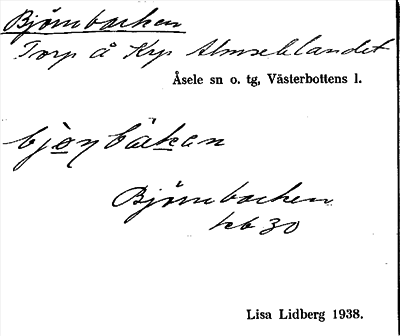 Björnbacken
Torp å Krp Almselelandet
Åsele sn o. tg, Västerbottens l.
bjo̲ŋbäk̲an
Björnbacken
kb 30
Lisa Lidberg 1938.